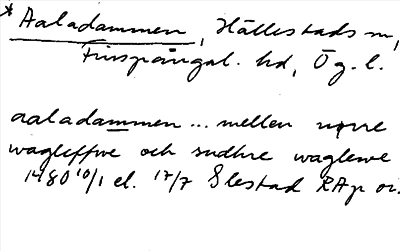 * Aaladammen, Hällestads sn,
Finspångal. hd, Ög. l.
aaladammen ... mellen nørre
wagleffwe och sudhre waglewe
1480 10/1 el. 17/7 Slestad RAp or.